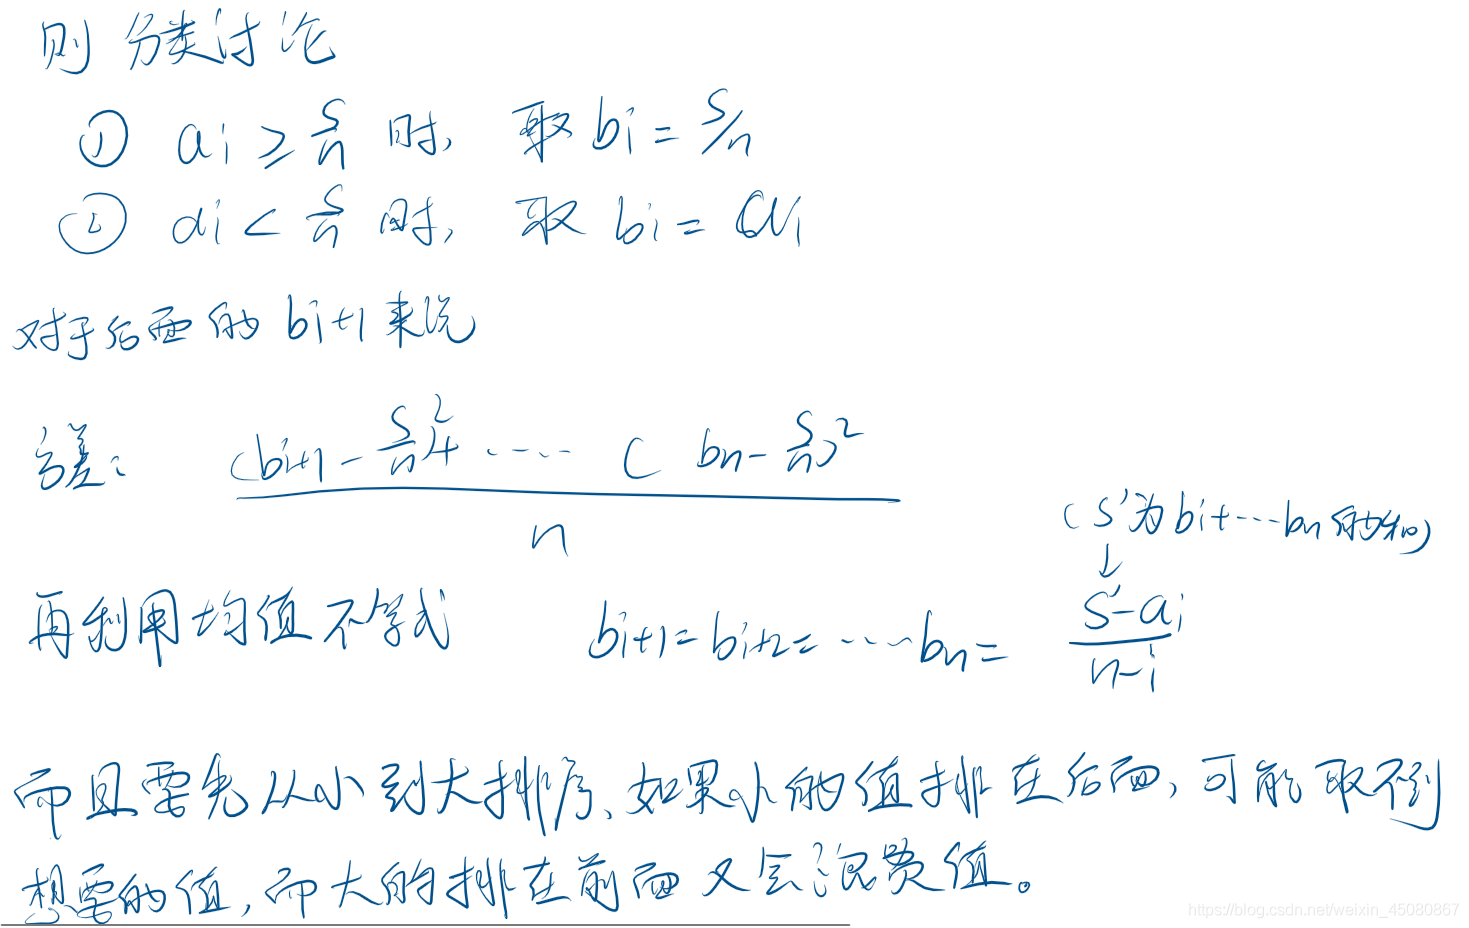 则 分类讨论
① ai ≥ S/n 时, 取 bi = S/n
② ai < S/n 时, 取 bi = ai
对于后面的 bi+1 来说
方差: ((bi+1 - S/n)²+ ······ ( bn - S/n)²) / n
(S'为bi+···bn的和)
↓
再利用均值不等式 bi+1 = bi+2 = ····bn = (S'-ai)/(n-i)
而且要先从小到大排序、如果小的值排在后面, 可能取不到
想要的值, 而大的排在前面又会浪费值。
https://blog.csdn.net/weixin_45080867